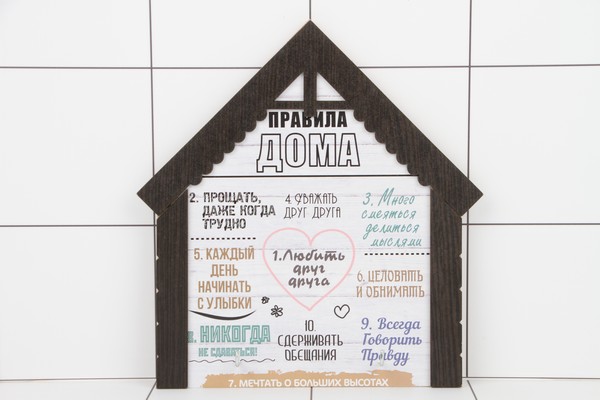 ПРАВИЛА
ДОМА
2. ПРОЩАТЬ,
ДАЖЕ КОГДА
ТРУДНО
4. УВАЖАТЬ
ДРУГ ДРУГА
3. Много
смеяться
делиться
мыслями
5. КАЖДЫЙ
ДЕНЬ
НАЧИНАТЬ
С УЛЫБКИ
1. Любить
друг
друга
6. ЦЕЛОВАТЬ
И ОБНИМАТЬ
8. НИКОГДА
НЕ СДАВАТЬСЯ!
10.
СДЕРЖИВАТЬ
ОБЕЩАНИЯ
9. Всегда
Говорить
Правду
7. МЕЧТАТЬ О БОЛЬШИХ ВЫСОТАХ